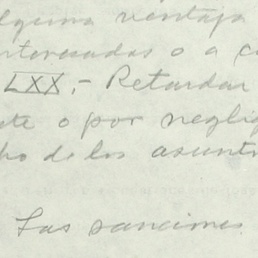 alguna ventaja
interesadas o a c
LXX.- Retardar
te o por neglig
ho de los asunt
Las sanciones